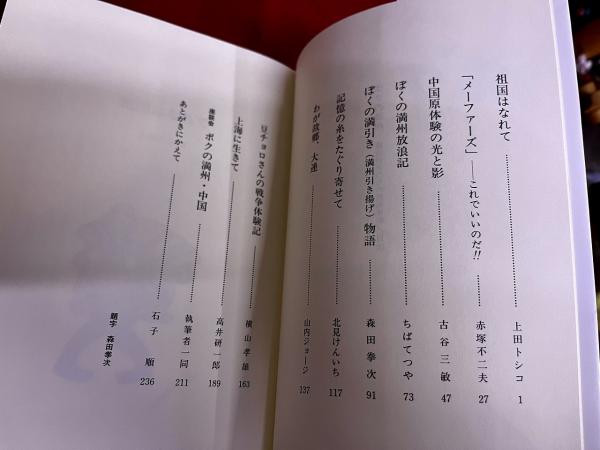 祖国はなれて……………………上田トシコ 1
「メーファーズ」――これでいいのだ!!………赤塚不二夫 27
中国原体験の光と影……………………古谷三敏 47
ぼくの満州放浪記……………………ちばてつや 73
ぼくの満引き(満州引き揚げ)物語…………森田拳次 91
記憶の糸をたぐり寄せて……………………北見けんいち 117
わが故郷、大連……………………山内ジョージ 137
豆チョロさんの戦争体験記……………………横山孝雄 163
上海に生きて……………………高井研一郎 189
座談会 ボクの満州・中国……………………執筆者一同 211
あとがきにかえて……………………石子順 236
題字 森田拳次